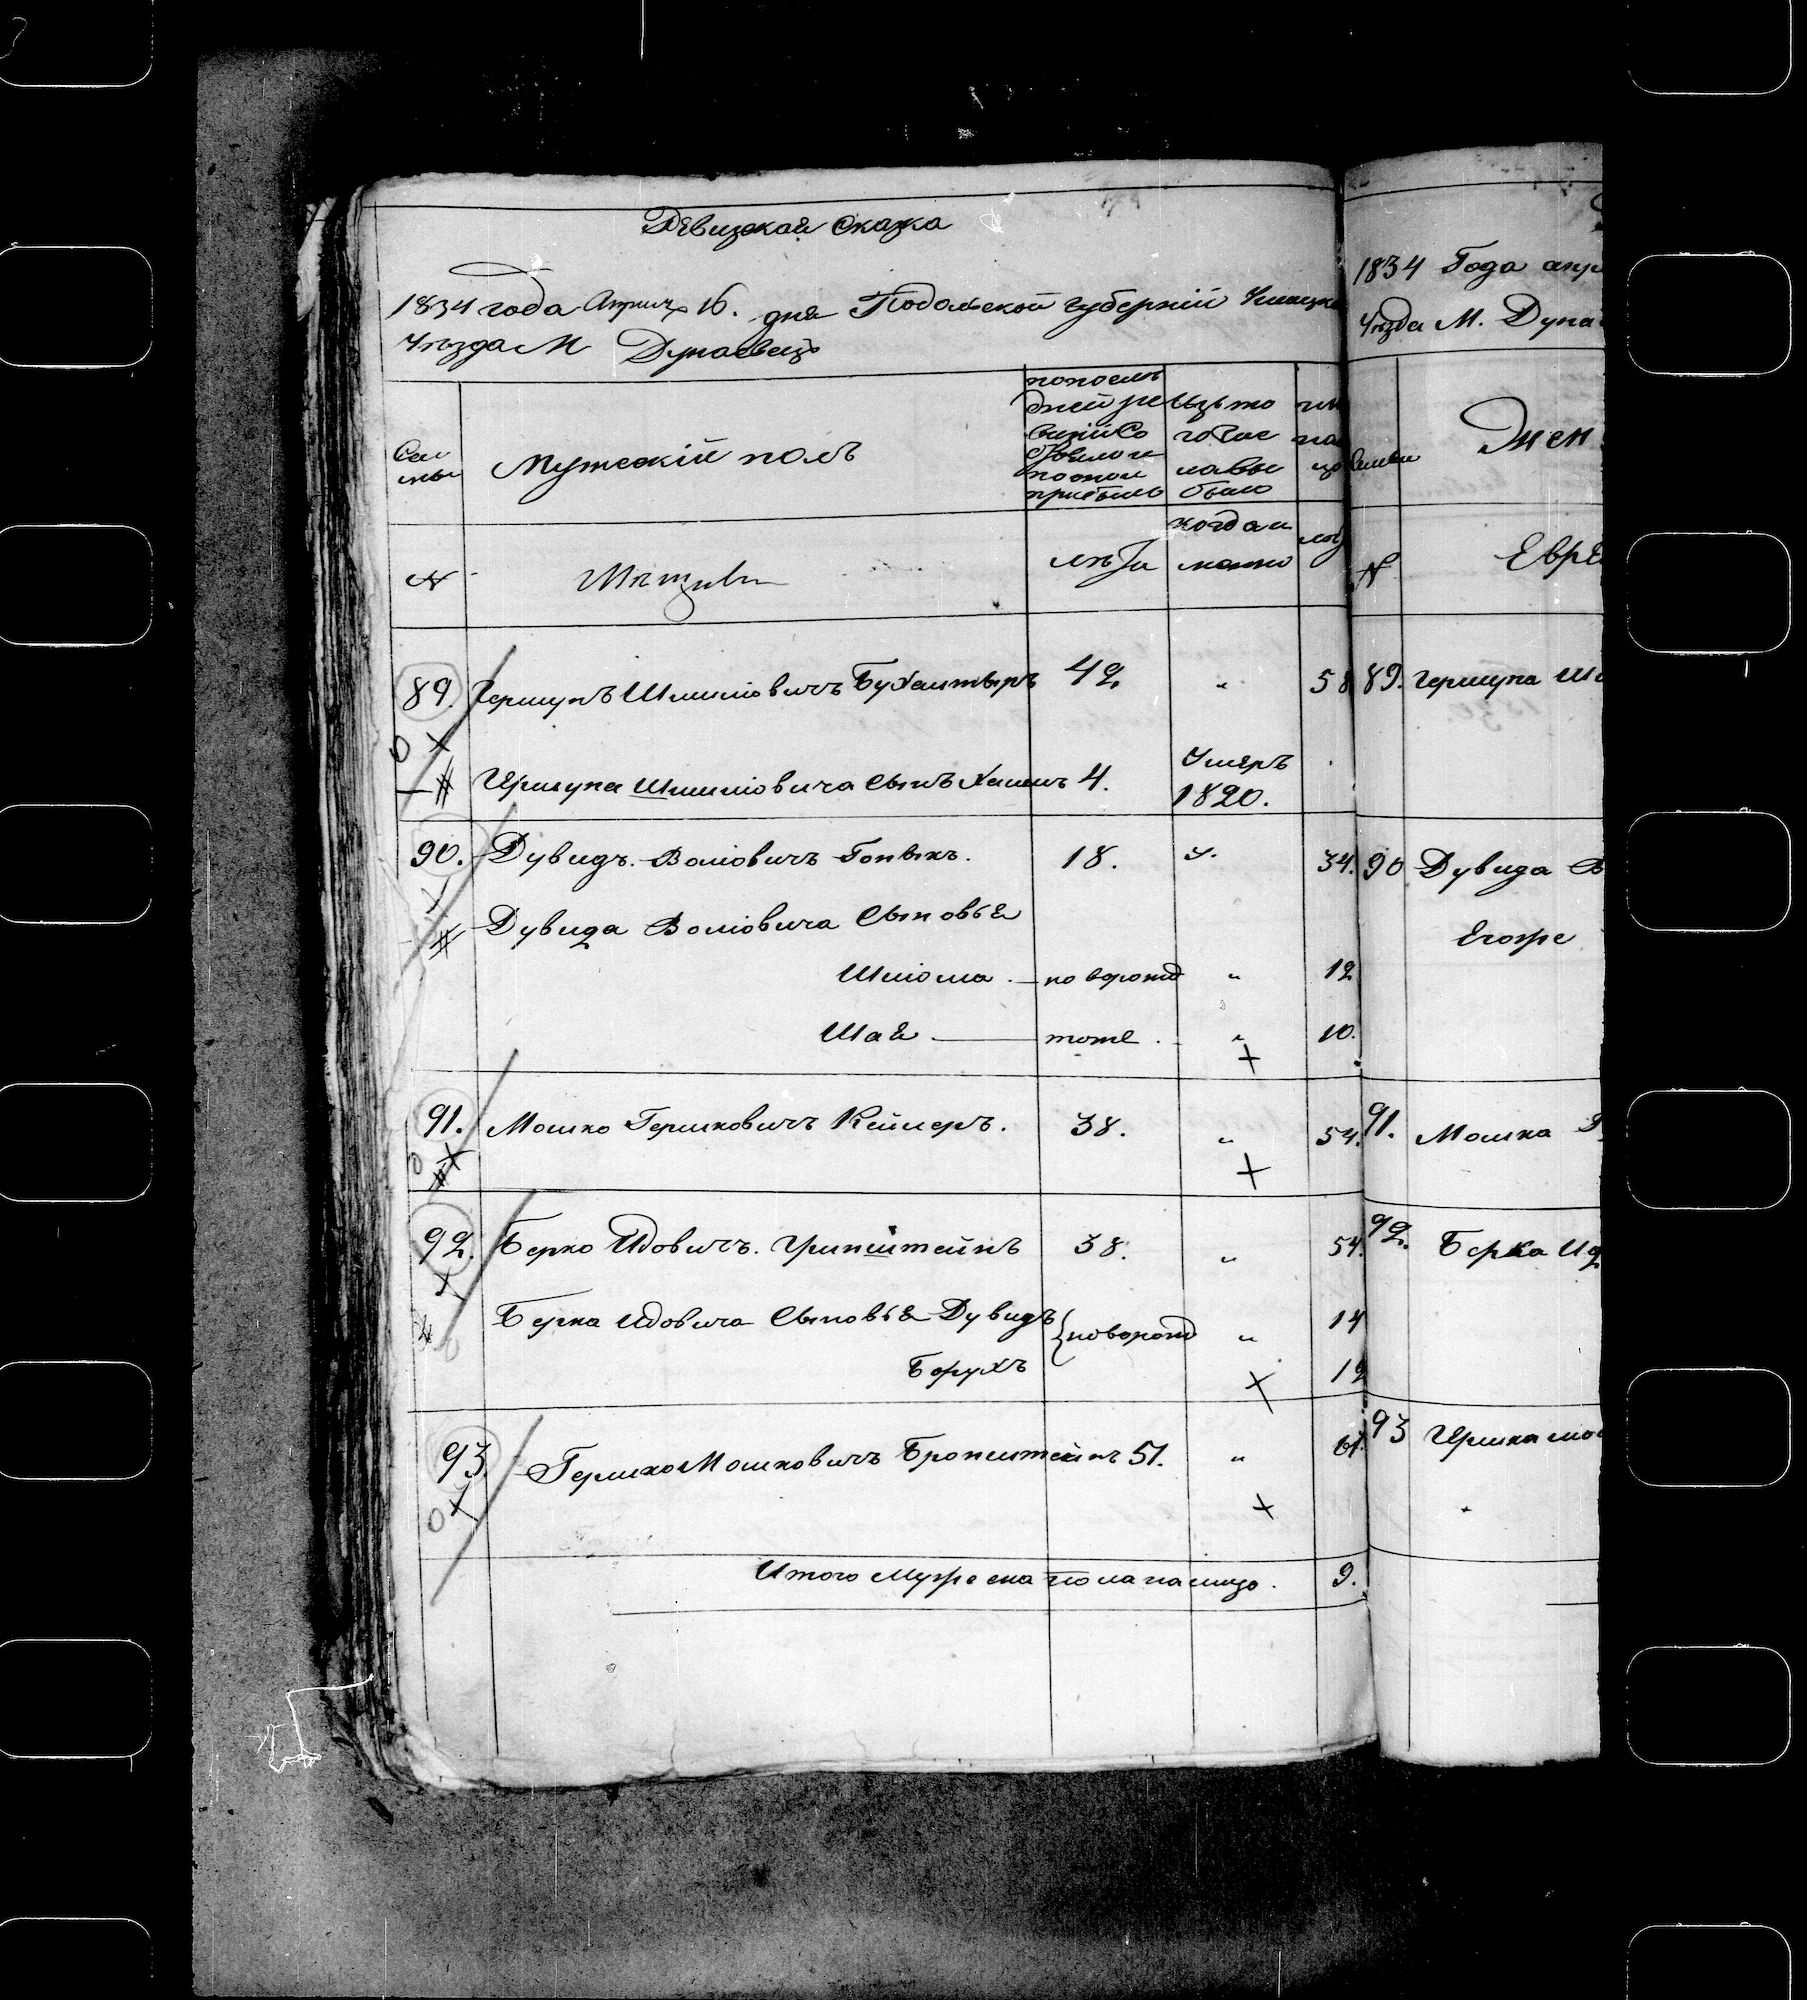 Ревизская Сказка
1834 года Апреля 16. дня Подольской губерній Ушицка
Уѣзда М Дунаевец
Семьи
Мужескій полъ
по послѣдней ревизіи состояло и после прибыло
Изъ того числа выбыло
N
лѣта
когда и
89. Гершунъ Шмиліовичъ Бухалтыръ 42. „ 58
Гершуна Шмиліовича Сынъ Хаимъ 4. Умеръ
1820.
90. Дувидъ Воліовичъ Гоныкъ. 18. „ 34.
Дувида Воліовича Сыновья
Шліома — новорожд „ 12
Шая — тоже „ 10.
91. Мошко Гершковичъ Кейлеръ. 38. „ 54.
92. Берко Идовичъ. Гринштейнъ 38. „ 54.
Берка Идовича Сыновья Дувидъ новорожд „ 14
Борухъ 12
93. Гершко Мошковичъ Бронштейнъ 51. „ 67.
Итого Мужеска пола налицо. 9.
1834 Года апр
Уѣзда М. Дуна
Семьи
Жен
N
Евре
89. Гершуна Ш
90 Дувида В
Егоже
91. Мошка
92. Берка Ид
93 Гершка Мо